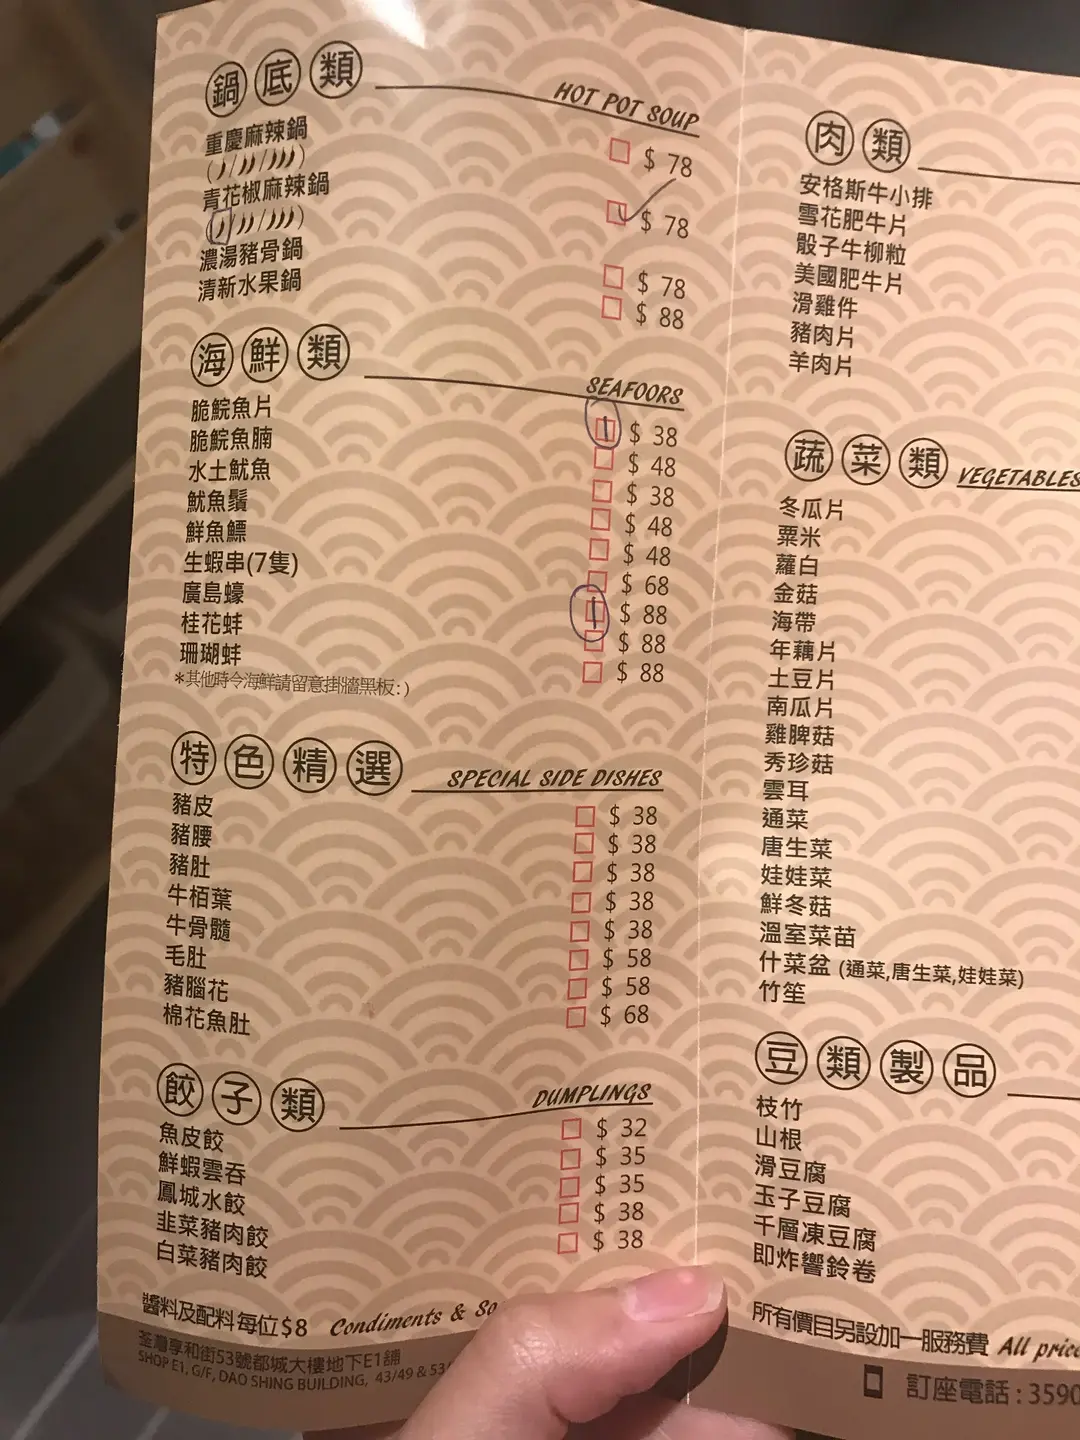 鍋底類 HOT POT SOUP
重慶麻辣鍋 $ 78
青花椒麻辣鍋 $ 78
濃湯豬骨鍋 $ 78
清新水果鍋 $ 88
海鮮類 SEAFOORS
脆鯇魚片 1 $ 38
脆鯇魚腩 $ 48
水土魷魚 $ 38
魷魚鬚 $ 48
鮮魚鰾 $ 48
生蝦串(7隻) $ 68
廣島蠔 1 $ 88
桂花蚌 $ 88
珊瑚蚌 $ 88
*其他時令海鮮請留意掛牆黑板:)
特色精選 SPECIAL SIDE DISHES
豬皮 $ 38
豬腰 $ 38
豬肚 $ 38
牛栢葉 $ 38
牛骨髓 $ 38
毛肚 $ 58
豬腦花 $ 58
棉花魚肚 $ 68
餃子類 DUMPLINGS
魚皮餃 $ 32
鮮蝦雲吞 $ 35
鳳城水餃 $ 35
韭菜豬肉餃 $ 38
白菜豬肉餃 $ 38
醬料及配料每位$8 Condiments &
荃灣享和街53號都城大樓地下E1舖
SHOP E1, G/F, DAO SHING BUILDING, 43/49 &
肉類
安格斯牛小排
雪花肥牛片
骰子牛柳粒
美國肥牛片
滑雞件
豬肉片
羊肉片
蔬菜類 VEGETABLES
冬瓜片
粟米
蘿白
金菇
海帶
年藕片
土豆片
南瓜片
雞脾菇
秀珍菇
雲耳
通菜
唐生菜
娃娃菜
鮮冬菇
溫室菜苗
什菜盆 (通菜,唐生菜,娃娃菜)
竹笙
豆類製品
枝竹
山根
滑豆腐
玉子豆腐
千層凍豆腐
即炸響鈴卷
所有價目另設加一服務費 All price
訂座電話 : 3590